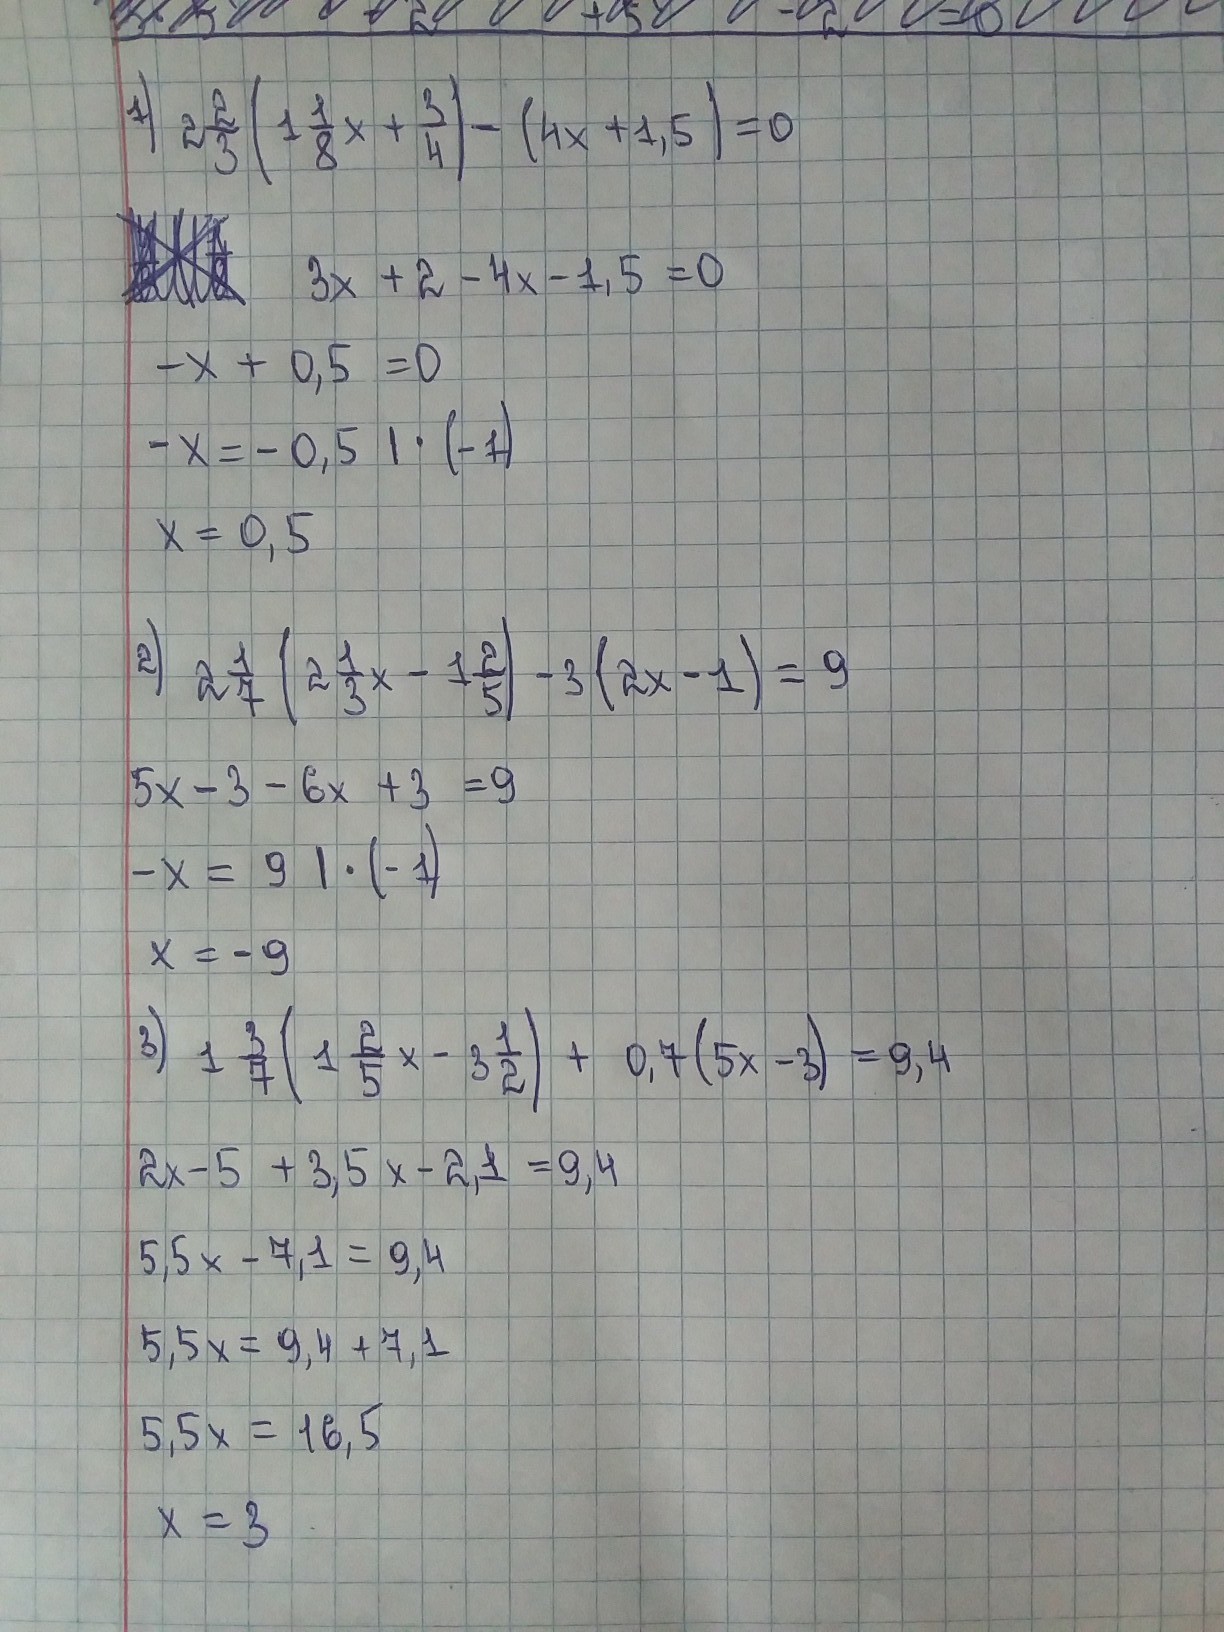 1) 2 2/3 (1 1/8 x + 3/4) - (4x + 1,5) = 0
3x + 2 - 4x - 1,5 = 0
-x + 0,5 = 0
-x = - 0,5 | · (-1)
x = 0,5
2) 2 1/7 (2 1/3 x - 1 2/5) - 3 (2x - 1) = 9
5x - 3 - 6x + 3 = 9
-x = 9 | · (-1)
x = -9
3) 1 3/7 (1 2/5 x - 3 1/2) + 0,7 (5x - 3) = 9,4
2x - 5 + 3,5x - 2,1 = 9,4
5,5x - 7,1 = 9,4
5,5x = 9,4 + 7,1
5,5x = 16,5
x = 3